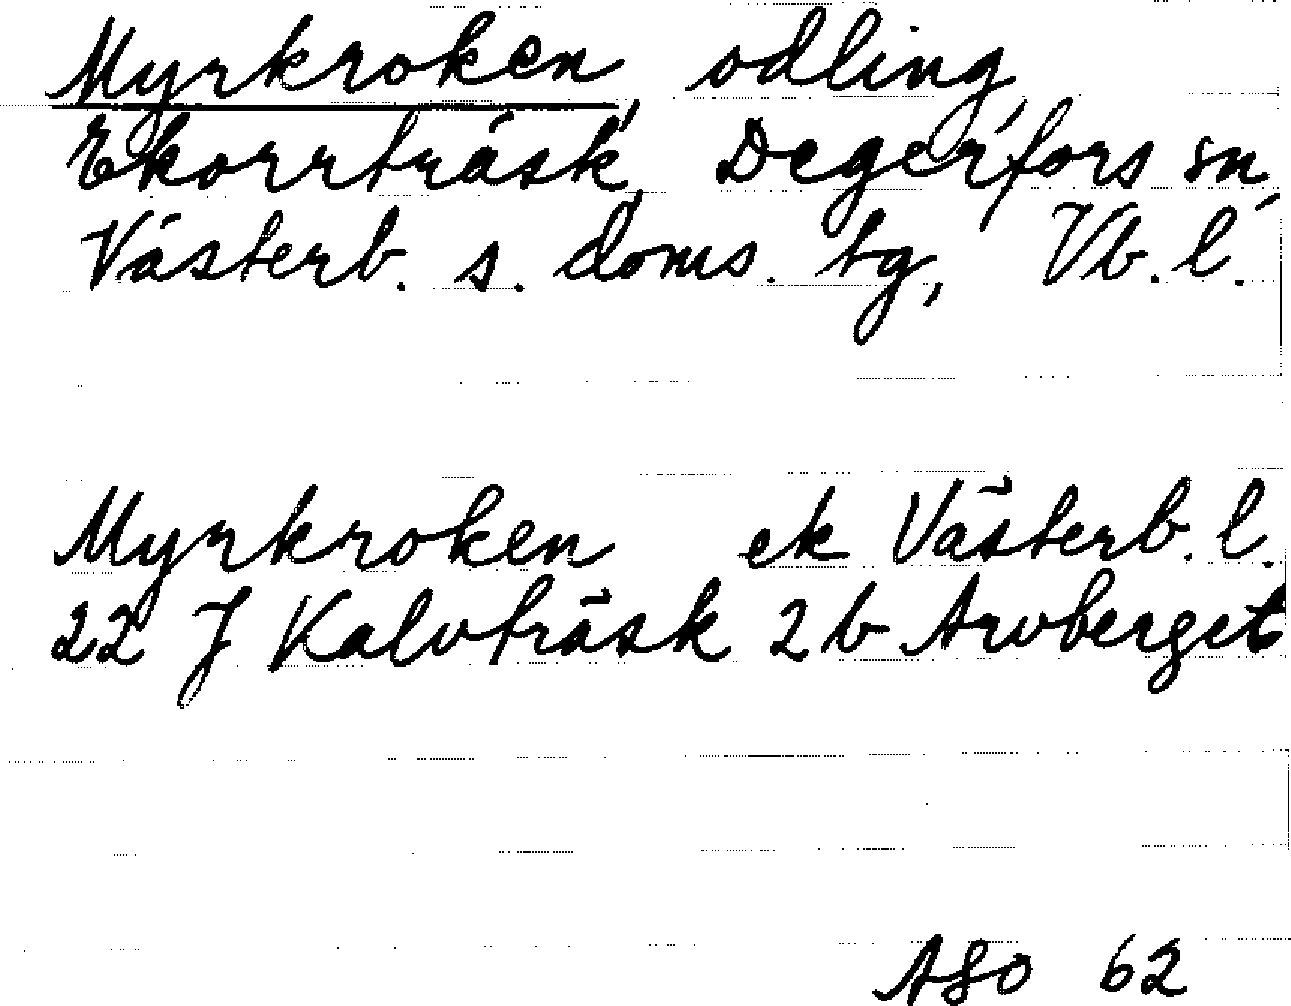 Myrkroken, odling,
Ekorrträsk, Degerfors sn,
Västerb. s. doms. tg, Vb. l.
Myrkroken ek Västerb. l.
22 J Kalvträsk 2b Arvberget
62